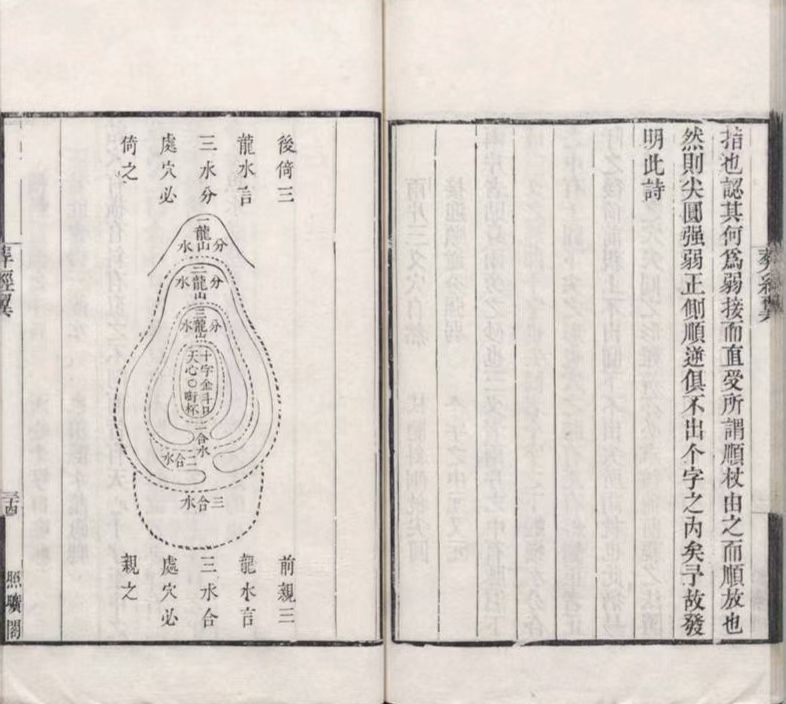 指也認其何爲弱接而直受所謂順杖由之而順放也
然則尖圓强弱正側順逆俱不出个字之內矣予故發
明此詩
葬經翼
後倚三
龍水言
三水分
處穴必
倚之
一龍山
分水
二龍山
分水
三龍山
分水
十字金斗口
天心〇
杯
一合水
二合水
三合水
前親三
龍水言
三水合
處穴必
親之
葬經翼
照曠閣